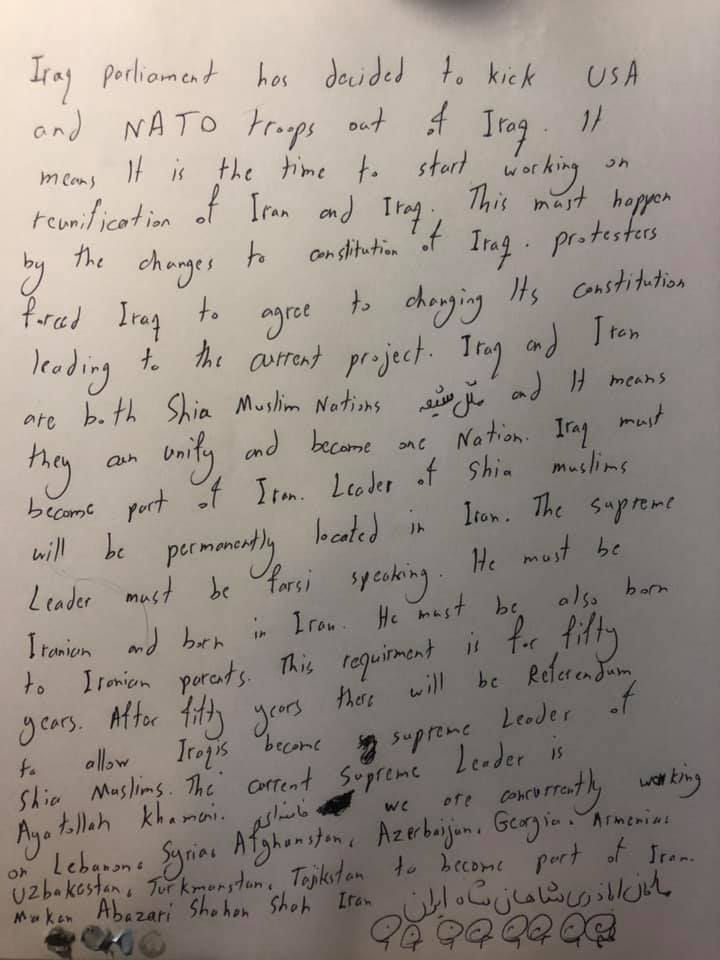 Iraq parliament has decided to kick USA
and NATO troops out of Iraq. It
means It is the time to start working on
reunification of Iran and Iraq. This must happen
by the changes to constitution of Iraq. protesters
forced Iraq to agree to changing Its constitution
leading to the current project. Iraq and Iran
are both Shia Muslim Nations ملل شیعه and It means
they can unify and become one Nation. Iraq must
become part of Iran. Leader of Shia muslims
will be permanently located in Iran. The supreme
Leader must be farsi speaking. He must be
Iranian and born in Iran. He must be also born
to Iranian parents. This requirment is for fifty
years. After fifty years there will be Referendum
to allow Iraqis become supreme Leader of
Shia Muslims. The current Supreme Leader is
Ayatollah Khameni. خامنه‌ای we are concurrently working
on Lebanon، Syria، Afghanstan، Azerbaijan، Georgia، Armenia،
Uzbakestan، Turkmanstan، Tajikstan to become part of Iran.
Makan Abazari Shahan Shah Iran ماکان اباذری شاهان شاه ایران